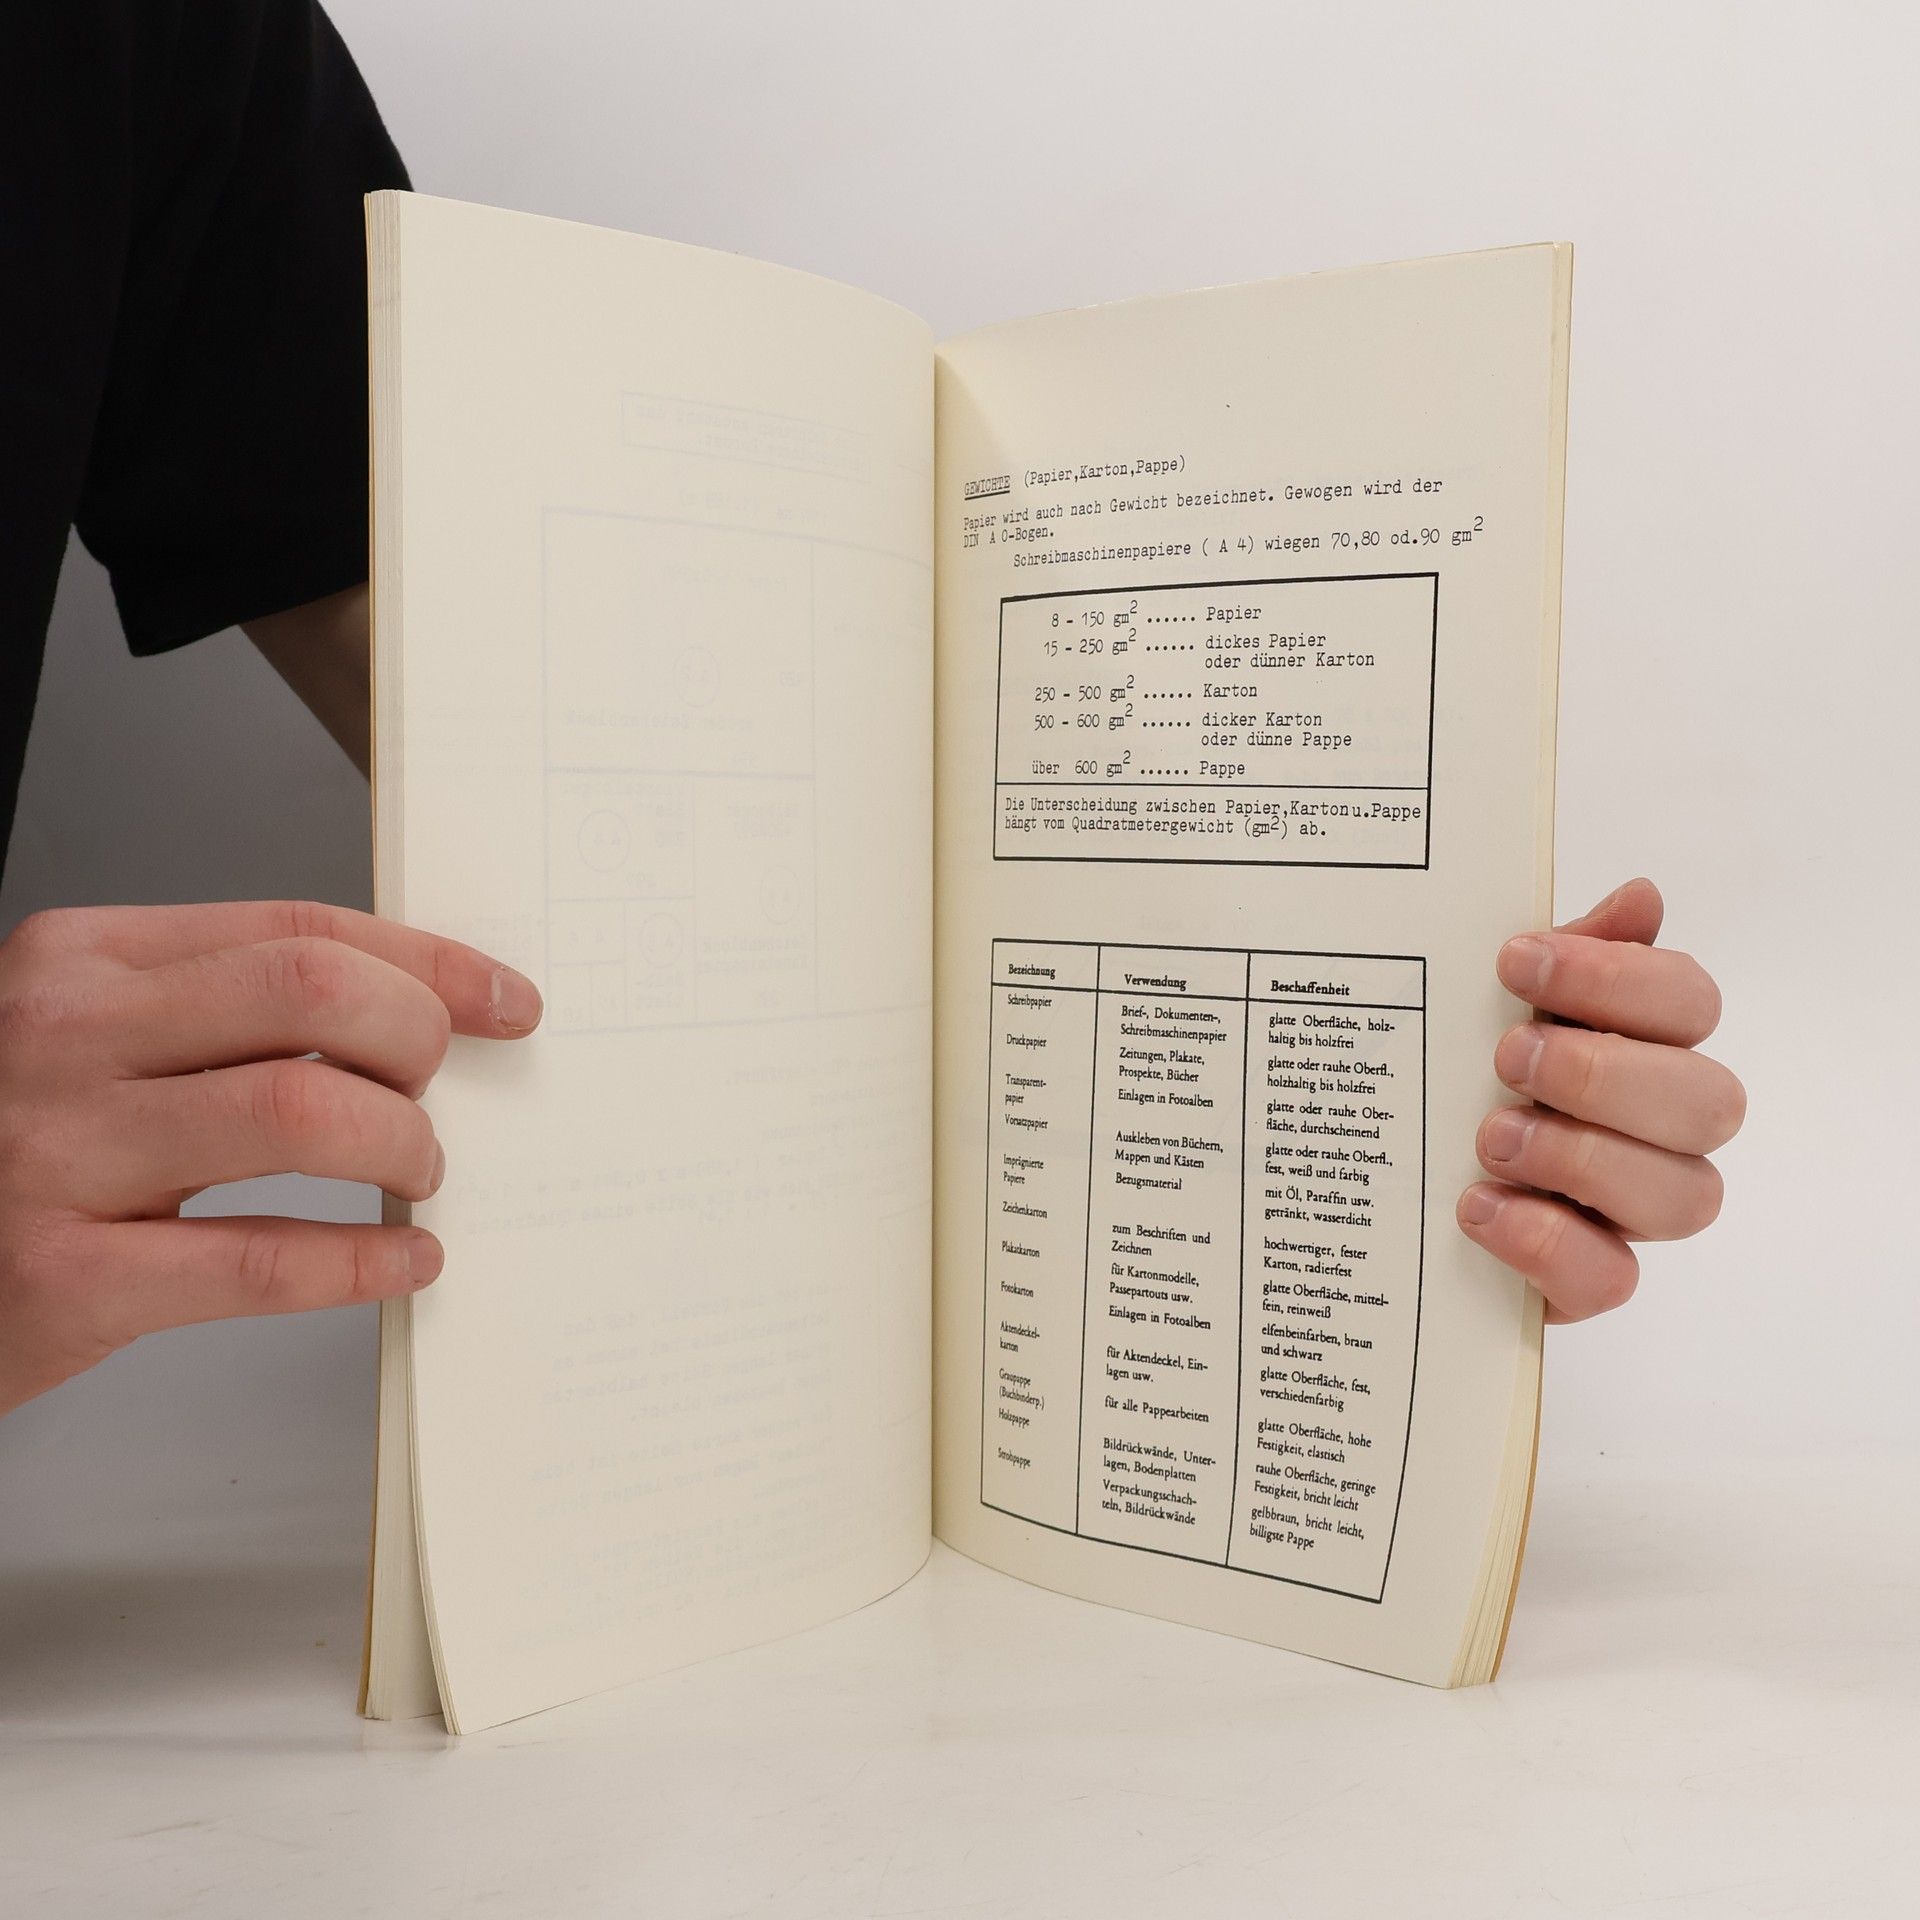 GEWICHTE (Papier,Karton,Pappe)
Papier wird auch nach Gewicht bezeichnet. Gewogen wird der
DIN A O-Bogen.
Schreibmaschinenpapiere ( A 4) wiegen 70,80 od.90 gm²
8 - 150 gm² ...... Papier
15 - 250 gm² ...... dickes Papier
oder dünner Karton
250 - 500 gm² ...... Karton
500 - 600 gm² ...... dicker Karton
oder dünne Pappe
über 600 gm² ...... Pappe
Die Unterscheidung zwischen Papier,Karton u.Pappe
hängt vom Quadratmetergewicht (gm²) ab.
Bezeichnung
Schreibpapier
Druckpapier
Transparent-
papier
Vorsatzpapier
Imprägnierte
Papiere
Zeichenkarton
Plakatkarton
Fotokarton
Aktendeckel-
karton
Graupappe
(Buchbinderp.)
Holzpappe
Strohpappe
Verwendung
Brief-, Dokumenten-,
Schreibmaschinenpapier
Zeitungen, Plakate,
Prospekte, Bücher
Einlagen in Fotoalben
Auskleben von Büchern,
Mappen und Kästen
Bezugsmaterial
zum Beschriften und
Zeichnen
für Kartonmodelle,
Passepartouts usw.
Einlagen in Fotoalben
für Aktendeckel, Ein-
lagen usw.
für alle Pappearbeiten
Bildrückwände, Unter-
lagen, Bodenplatten
Verpackungsschach-
teln, Bildrückwände
Beschaffenheit
glatte Oberfläche, holz-
haltig bis holzfrei
glatte oder rauhe Oberfl.,
holzhaltig bis holzfrei
glatte oder rauhe Ober-
fläche, durchscheinend
glatte oder rauhe Oberfl.,
fest, weiß und farbig
mit Öl, Paraffin usw.
getränkt, wasserdicht
hochwertiger, fester
Karton, radierfest
glatte Oberfläche, mittel-
fein, reinweiß
elfenbeinfarben, braun
und schwarz
glatte Oberfläche, fest,
verschiedenfarbig
glatte Oberfläche, hohe
Festigkeit, elastisch
rauhe Oberfläche, geringe
Festigkeit, bricht leicht
gelbbraun, bricht leicht,
billigste Pappe